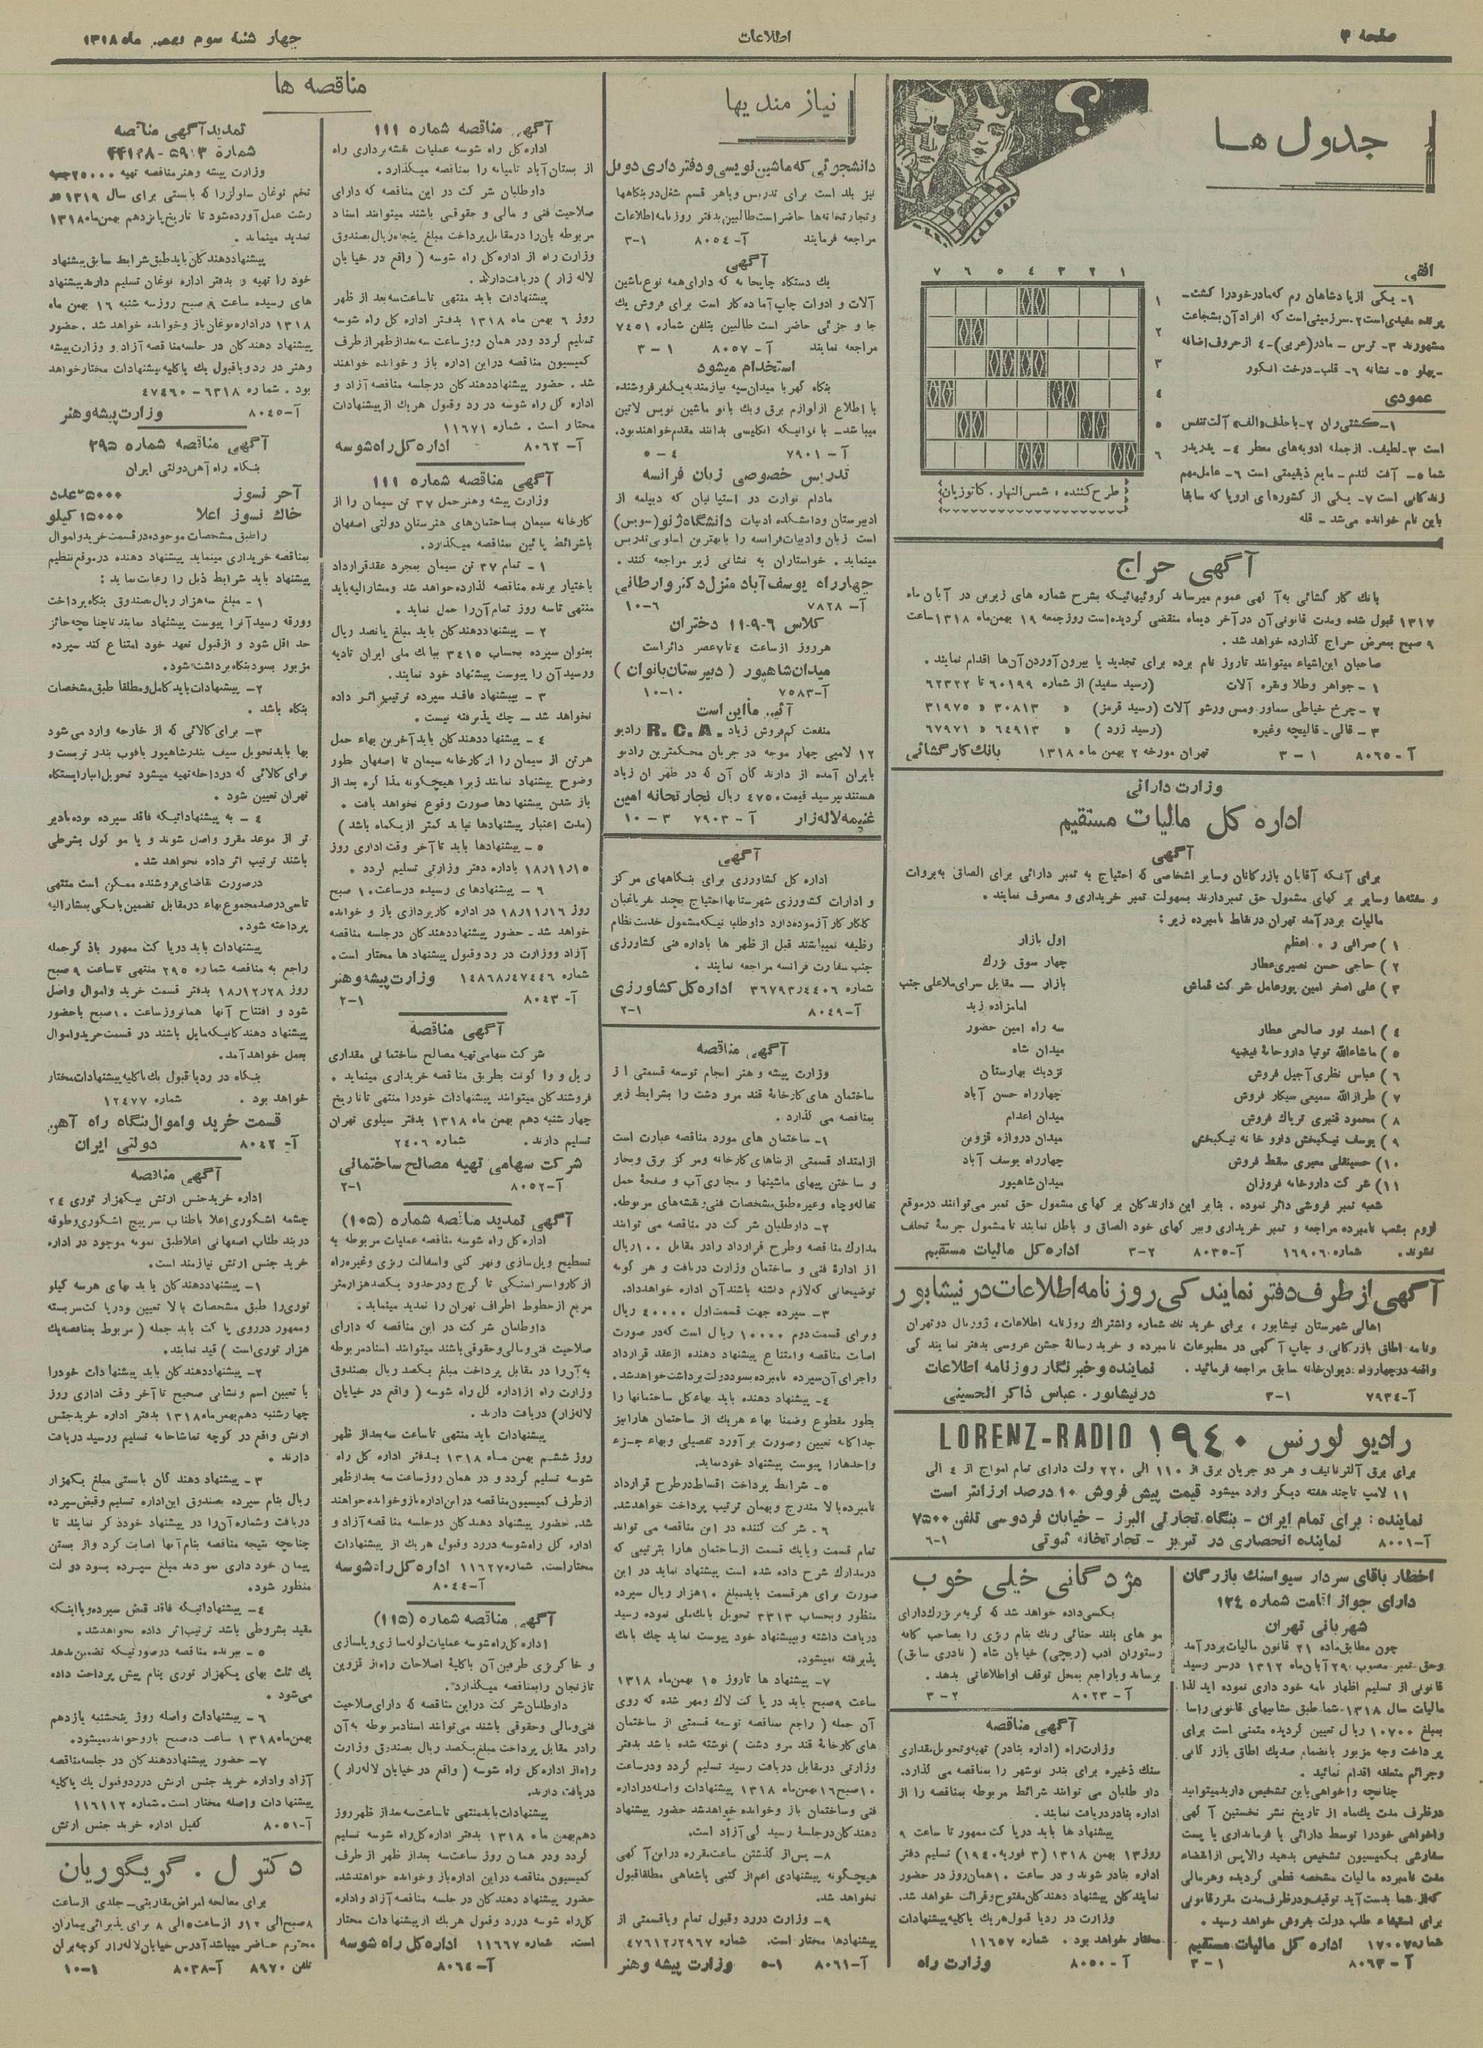 صفحه ۴
اطلاعات
چهارشنبه سوم بهمن ماه ۱۳۱۸
جدول ها
افقی
۱- یکی از پادشاهان رم که مادر خود را کشت-
پرنده سفیدی است ۲- سرزمینی است که افراد آن بشجاعت
مشهورند ۳- ترس - مادر (عربی) - ٤ از حروف اضافه
- پهلو ٥- نشانه ٦- قلب- درخت انگور
عمودی
۱- کشتی ران ۲- با حذف (الف) آلت تنفس
است ۳- لطیف. از جمله ادویه‌های معطر ٤- پدر پدر
شما ٥- آفت گندم - مایع ذیقیمتی است ٦- عامل مهم
زندگانی است ۷- یکی از کشورهای اروپا که سابقا
باین نام خوانده می‌شد - قله
۱ ۲ ۳ ٤ ٥ ٦ ۷
۱
۲
۳
٤
٥
٦
طرح کننده : شمس النهار. کاتوزیان
آگهی حراج
۱۳۱۷ قبول شده و مدت قانونی آن در آخر دیماه منقضی گردیده است روز جمعه ۱۹ بهمن ماه ۱۳۱۸ ساعت
۹ صبح بمعرض حراج گذارده خواهد شد .
صاحبان این اشیاء میتوانند تا روز نام برده برای تجدید یا بیرون آوردن آن‌ها اقدام نمایند .
۱ - جواهر و طلا و نقره آلات (رسید سفید) از شماره ٦۰۱۹۹ تا ٦۲۳۲۲
۲ - چرخ خیاطی سماور و مس و ورشو آلات (رسید قرمز) » ۳۰۸۱۳ » ۳۱۹۷٥
۳ - قالی - قالیچه و غیره (رسید زرد) » ٦٤۹۱۳ » ٦۷۹۷۱
آ - ۸۰٦٥ ۱ - ۳ تهران مورخه ۲ بهمن ماه ۱۳۱۸ بانک کارگشائی
وزارت دارائی
اداره کل مالیات مستقیم
آگهی
برای آنکه آقایان بازرگانان و سایر اشخاصی که احتیاج به تمبر دارائی برای الصاق به بروات
و سفته‌ها و سایر برگهای مشمول حق تمبر دارند بسهولت تمبر خریداری و مصرف نمایند .
مالیات بر درآمد تهران در نقاط نامبرده زیر :
۲ ) حاجی حسن نصیری عطار چهار سوق بزرگ
۳ ) علی اصغر امین پور عامل شرکت قماش بازار - مقابل سرای ملا علی جنب
امامزاده زید
٤ ) احمد نور صالحی عطار سه راه امین حضور
٥ ) ماشاءالله توتیا داروخانهٔ فیضیه میدان شاه
٦ ) عباس نظری آجیل فروش نزدیک بهارستان
۷ ) طرازالله سمیعی سیگار فروش چهارراه حسن آباد
۸ ) محمود قنبری تریاک فروش میدان اعدام
۹ ) یوسف نیکبخش دارو خانه نیکبخش میدان دروازه قزوین
۱۰ ) حسینقلی معیری سقط فروش چهارراه یوسف آباد
۱۱ ) شرکت داروخانه فروزان میدان شاهپور
شعبه تمبر فروشی دائر نموده . بنابر این دارندگان برگهای مشمول حق تمبر می‌توانند در موقع
لزوم بشعب نامبرده مراجعه و تمبر خریداری و ببرگهای خود الصاق و باطل نمایند تا مشمول جریمهٔ تخلف
نشوند . شماره ۱٦۹۰٦۰ آ-۸۰۳٥ ۲-۳ اداره کل مالیات مستقیم
آگهی از طرف دفتر نمایندگی روزنامه اطلاعات در نیشابور
اهالی شهرستان نیشابور ، برای خرید تک شماره و اشتراک روزنامه اطلاعات ، ژورنال دوتهران
و نامه اطاق بازرگانی و چاپ آگهی در مطبوعات نامبرده و خرید رسالهٔ جشن عروسی بدفتر نمایندگی
واقعه در چهارراه دیوان‌خانه سابق مراجعه فرمائید . نماینده و خبرنگار روزنامه اطلاعات
آ-۷۹۳٤ ۱-۳ در نیشابور . عباس ذاکر الحسینی
رادیو لورنس ۱۹٤۰ LORENZ-RADIO
برای برق آلترناتیف و هر دو جریان برق از ۱۱۰ الی ۲۲۰ ولت دارای تمام امواج از ٤ الی
۱۱ لامپ تا چند هفته دیگر وارد میشود قیمت پیش فروش ۱۰ درصد ارزانتر است
نماینده : برای تمام ایران - بنگاه تجارتی البرز - خیابان فردوسی تلفن ۷٥۰۰
آ-۸۰۰۱ نماینده انحصاری در تبریز - تجارتخانه ثوتی ۱-٦
اخطار بآقای سردار سیواسنک بازرگان
دارای جواز اقامت شماره ۱۲٤
شهربانی تهران
چون مطابق ماده ۲۱ قانون مالیات بر درآمد
و حق تمبر مصوب ۲۹ آبان ماه ۱۳۱۲ در سر رسید
قانونی از تسلیم اظهارنامه خودداری نموده اید لذا
مالیات سال ۱۳۱۸ شما طبق مشابهای قانونی راسا
بمبلغ ۱۰۷۰۰ ریال تعیین گردیده متمنی است برای
پرداخت وجه مزبور بانضمام صدیک اطاق بازرگانی
و جرائم متعلقه اقدام نمائید .
چنانچه واخواهی باین تشخیص دارید میتوانید
در ظرف مدت یکماه از تاریخ نشر نخستین آگهی
واخواهی خود را توسط دارائی یا فرمانداری یا پست
سفارشی بکمیسیون تشخیص بدهید والا پس از انقضاء
مدت نامبرده مالیات مشخصه قطعی گردیده و هر مالی
که از شما بدست آید توقیف و در ظرف مدت مقرر قانونی
برای استیفاء طلب دولت بفروش خواهد رسید .
شماره ۱۷۰۰۷ اداره کل مالیات مستقیم
آ - ۸۰٦۳ ۱ - ۳
مژدگانی خیلی خوب
بکسی داده خواهد شد که گربه بزرگ دارای
مو های بلند حنائی رنگ بنام رنزی را بصاحب کافه
رستوران ادب (ریجی) خیابان شاه (نادری سابق)
برساند و یا راجع بمحل توقف او اطلاعاتی بدهد .
آ - ۸۰۲۳ ۲ - ۳
آگهی مناقصه
وزارت راه (اداره بنادر) تهیه و تحویل مقداری
سنگ ذخیره برای بندر نوشهر را بمناقصه می گذارد.
داو طلبان می توانند شرائط مربوطه بمناقصه را از
اداره بنادر دریافت نمایند .
پیشنهاد ها باید در پاکت ممهور تا ساعت ۹
روز ۱۳ بهمن ۱۳۱۸ (۳ فوریه ۱۹٤۰) تسلیم دفتر
اداره بنادر شوند و در ساعت ۱۰ همان روز در حضور
نمایندگان پیشنهاد دهندگان مفتوح و قرائت خواهد شد.
وزارت در رد یا قبول هر یک یا کلیه پیشنهادات
مختار خواهد بود . شماره ۱۱٦٥۷
آ - ۸۰٥۰ وزارت راه
نیازمندیها
دانشجوئی که ماشین نویسی و دفترداری دوبل
نیز بلد است برای تدریس و یا هر قسم شغل در بنگاهها
و تجارتخانه‌ها حاضر است طالبین بدفتر روزنامه اطلاعات
مراجعه فرمایند آ- ۸۰٥٤ ۱-۳
آگهی
یک دستگاه چاپخانه که دارای همه نوع ماشین
آلات و ادوات چاپ آماده کار است برای فروش یک
جا و جزئی حاضر است طالبین بتلفن شماره ۷٤٥۱
مراجعه نمایند آ- ۸۰٥۷ ۱ - ۳
استخدام میشود
بنگاه گهر با میدان سپه نیازمند به یکنفر فروشنده
با اطلاع از لوازم برق و یک بانو ماشین نویس لاتین
میباشد- با نوانیکه انگلیسی بدانند مقدم خواهند بود.
آ- ۷۹۰۱ ٤ - ٥
تدریس خصوصی زبان فرانسه
مادام نوارت در استپانیان که دیپلمه از
ادبیرستان و دانشکده ادبیات دانشگاه ژنو (سویس)
است زبان و ادبیات فرانسه را با بهترین اسلوبی تدریس
مینماید . خواستاران به نشانی زیر مراجعه کنند .
چهارراه یوسف آباد منزل دکتر وارطانی
آ- ۷۸۲۸ ٦-۱۰
کلاس ٦-۹-۱۱ دختران
هر روز از ساعت ٤ تا ۷ عصر دائر است
میدان شاهپور (دبیرستان بانوان)
آ-۷٥۸۳ ۱۰-۱۰
آئین ما این است
منفعت کم فروش زیاد R.C.A. رادیو
۱۲ لامپی چهار موجه در جریان محکمترین رادیو
بایران آمده از دارندگان آن که در طهران زیاد
هستند بپرسید قیمت ٤۷٥۰ ریال تجارتخانه امین
غنیمه لاله زار آ- ۷۹۰۳ ۳ - ۱۰
آگهی
اداره کل کشاورزی برای بنگاههای مرکز
و ادارات کشاورزی شهرستانها احتیاج بچند نفر باغبان
گلکار کار آزموده دارد داوطلبانیکه مشمول خدمت نظام
وظیفه نمیباشند قبل از ظهر ها باداره فنی کشاورزی
جنب سفارت فرانسه مراجعه نمایند .
شماره ۳٦۷۹۳٫٤٤۰٦ اداره کل کشاورزی
آ-۸۰٤۹ ۱-۲
آگهی مناقصه
وزارت پیشه و هنر انجام توسعه قسمتی از
ساختمان های کارخانهٔ قند مرو دشت را بشرایط زیر
بمناقصه می گذارد .
۱- ساختمان های مورد مناقصه عبارت است
از امتداد قسمتی از بناهای کارخانه و مرکز برق و بخار
و ساختن پیهای ماشینها و مجاری آب و صفحهٔ حمل
تفاله و چاه و غیره طبق مشخصات فنی و نقشه‌های مربوطه.
۲- داوطلبان شرکت در مناقصه می توانند
مدارک مناقصه و طرح قرارداد را در مقابل ۱۰۰ ریال
از ادارهٔ فنی و ساختمان وزارت دریافت و هر گونه
توضیحاتی که لازم داشته باشند آن اداره خواهد داد.
۳- سپرده جهت قسمت اول ٤۰۰۰۰ ریال
و برای قسمت دوم ۱۰۰۰۰ ریال است که در صورت
اصابت مناقصه و امتناع پیشنهاد دهنده از عقد قرارداد
و اجرای آن سپرده نامبرده بسود دولت برداشت خواهد شد.
٤- پیشنهاد دهنده باید بهای کل ساختمانها را
بطور مقطوع و ضمنا بهاء هر یک از ساختمان ها را نیز
جداگانه تعیین و صورت برآورد تفصیلی و بهاء جزء
واحدها را پیوست پیشنهاد خود نماید.
٥- شرایط پرداخت اقساط در طرح قرارداد
نامبرده بالا مندرج و بهمان ترتیب پرداخت خواهد شد.
٦- شرکت کننده در این مناقصه می تواند
تمام قسمت و یا یک قسمت از ساختمان ها را بترتیبی که
در مدارک شرح داده شده است پیشنهاد نماید در این
صورت برای هر قسمت باید مبلغ ۱۰ هزار ریال سپرده
منظور و بحساب ۳۳۱۳ تحویل بانک ملی نموده رسید
دریافت داشته و به پیشنهاد خود پیوست نماید چک بانک
پذیرفته نمیشود.
۷- پیشنهاد ها تا روز ۱٥ بهمن ماه ۱۳۱۸
ساعت ۹ صبح باید در پاکت لاک و مهر شده که روی
آن جمله (راجع بمناقصه توسعه قسمتی از ساختمان
های کارخانهٔ قند مرو دشت) نوشته شده باشد بدفتر
وزارتی در مقابل دریافت رسید تسلیم گردد و در ساعت
۱۰ صبح ۱٦ بهمن ماه ۱۳۱۸ پیشنهادات واصله در اداره
فنی و ساختمان باز و خوانده خواهد شد حضور پیشنهاد
دهندگان در جلسهٔ رسیدگی آزاد است.
۸- پس از گذشتن ساعت مقرره در این آگهی
هیچگونه پیشنهادی اعم از کتبی یا شفاهی مطلقا قبول
نخواهد شد.
۹- وزارت در رد و قبول تمام و یا قسمتی از
پیشنهادها مختار است. شماره ٤۷٦۱۲٫۲۹٦۷
آ-۸۰٦۱ ۱-٥ وزارت پیشه و هنر
مناقصه ها
آگهی مناقصه شماره ۱۱۱
اداره کل راه شوسه عملیات نقشه برداری راه
از بستان آباد تا میانه را بمناقصه میگذارد.
داوطلبان شرکت در این مناقصه که دارای
صلاحیت فنی و مالی و حقوقی باشند میتوانند اسناد
مربوطه بآن را در مقابل پرداخت مبلغ پنجاه ریال بصندوق
وزارت راه از اداره کل راه شوسه (واقع در خیابان
لاله زار) دریافت دارند.
پیشنهادات باید منتهی تا ساعت سه بعد از ظهر
روز ٦ بهمن ماه ۱۳۱۸ بدفتر اداره کل راه شوسه
تسلیم گردد و در همان روز ساعت سه بعد از ظهر از طرف
کمیسیون مناقصه در این اداره باز و خوانده خواهند
شد . حضور پیشنهاد دهندگان در جلسه مناقصه آزاد و
اداره کل راه شوسه در رد و قبول هر یک از پیشنهادات
مختار است . شماره ۱۱٦۷۱
آ- ۸۰٦۲ اداره کل راه شوسه
آگهی مناقصه شماره ۱۱۱
وزارت پیشه و هنر حمل ۳۷ تن سیمان را از
کارخانه سیمان بساختمان‌های هنرستان دولتی اصفهان
باشرائط پائین بمناقصه میگذارد.
۱ - تمام ۳۷ تن سیمان بمجرد عقد قرارداد
باختیار برنده مناقصه گذارده خواهد شد و مشارالیه باید
منتهی تا سه روز تمام آن را حمل نماید .
۲ - پیشنهاد دهندگان باید مبلغ پانصد ریال
بعنوان سپرده بحساب ۳٤۱٥ ببانک ملی ایران تادیه
و رسید آن را پیوست پیشنهاد خود نمایند.
۳ - پیشنهاد فاقد سپرده ترتیب اثر داده
نخواهد شد - چک پذیرفته نیست .
٤ - پیشنهاد دهندگان باید آخرین بهاء حمل
هر تن از سیمان را از کارخانه سیمان تا اصفهان بطور
وضوح پیشنهاد نمایند زیرا هیچگونه مذاکره بعد از
باز شدن پیشنهادها صورت وقوع نخواهد یافت .
(مدت اعتبار پیشنهادها نباید کمتر از یکماه باشد)
٥ - پیشنهادها باید تا آخر وقت اداری روز
۱۸٫۱۱٫۱٥ باداره دفتر وزارتی تسلیم گردد .
٦ - پیشنهادهای رسیده در ساعت ۱۰ صبح
روز ۱۸٫۱۱٫۱٦ در اداره کارپردازی باز و خوانده
خواهد شد - حضور پیشنهاد دهندگان در جلسه مناقصه
آزاد و وزارت در رد و قبول پیشنهاد ها مختار است.
شماره ۱٤۸٦۸٫٤۷٤٤٦ وزارت پیشه و هنر
آ- ۸۰٤۳ ۱-۲
آگهی مناقصه
شرکت سهامی تهیه مصالح ساختمانی مقداری
ریل و واگونت بطریق مناقصه خریداری مینماید .
فروشندگان میتوانند پیشنهادات خود را منتهی تا تاریخ
چهارشنبه دهم بهمن ماه ۱۳۱۸ بدفتر سیلوی تهران
تسلیم دارند . شماره ۲٤۰٦
شرکت سهامی تهیه مصالح ساختمانی
آ-۸۰٥۲ ۱-۲
آگهی تمدید مناقصه شماره (۱۰٥)
اداره کل راه شوسه مناقصه عملیات مربوطه به
تسطیح وپل سازی و نهر کنی و اسفالت ریزی و غیره راه
از کاروانسرا سنگی تا کرج و در حدود یکصد هزار متر
مربع از خطوط اطراف تهران را تمدید مینماید .
داوطلبان شرکت در این مناقصه که دارای
صلاحیت فنی و مالی و حقوقی باشند میتوانند اسناد مربوطه
به آن را در مقابل پرداخت مبلغ یکصد ریال بصندوق
وزارت راه از اداره کل راه شوسه (واقع در خیابان
لاله‌زار) دریافت دارند .
پیشنهادات باید منتهی تا ساعت سه بعد از ظهر
روز ششم بهمن ماه ۱۳۱۸ بدفتر اداره کل راه
شوسه تسلیم گردد و در همان روز ساعت سه بعد از ظهر
از طرف کمیسیون مناقصه در این اداره باز و خوانده خواهند
شد. حضور پیشنهاد دهندگان در جلسه مناقصه آزاد و
اداره کل راه شوسه در رد و قبول هر یک از پیشنهادات
مختار است. شماره ۱۱٦۲۷ اداره کل راه شوسه
آ-۸۰٤٤
آگهی مناقصه شماره (۱۱٥)
اداره کل راه شوسه عملیات لوله سازی و پلسازی
و خاکریزی طرفین آن با کلیهٔ اصلاحات راه از قزوین
تا زنجان را بمناقصه میگذارد.
داوطلبان شرکت در این مناقصه که دارای صلاحیت
فنی و مالی و حقوقی باشند می‌توانند اسناد مربوطه به آن
را در مقابل پرداخت مبلغ یکصد ریال بصندوق وزارت
راه از اداره کل راه شوسه (واقع در خیابان لاله زار)
دریافت دارند.
پیشنهادات باید منتهی تا ساعت سه بعد از ظهر روز
دهم بهمن ماه ۱۳۱۸ بدفتر اداره کل راه شوسه تسلیم
گردد و در همان روز ساعت سه بعد از ظهر از طرف
کمیسیون مناقصه در این اداره باز و خوانده خواهند شد.
حضور پیشنهاد دهندگان در جلسه مناقصه آزاد و اداره
کل راه شوسه در رد و قبول هر یک از پیشنهادات مختار
است. شماره ۱۱٦٦۷ اداره کل راه شوسه
آ- ۸۰٦٤
تمدید آگهی مناقصه
وزارت پیشه و هنر مناقصه تهیه ۲٥۰۰۰ جعبه
تخم نوغان ساولز را که بایستی برای سال ۱۳۱۹ در
رشت عمل آورده شود تا تاریخ پانزدهم بهمن ماه ۱۳۱۸
تمدید مینماید .
پیشنهاد دهندگان باید طبق شرایط سابق پیشنهاد
خود را تهیه و بدفتر اداره نوغان تسلیم دارند پیشنهاد
های رسیده ساعت ۸ صبح روز سه شنبه ۱٦ بهمن ماه
۱۳۱۸ در اداره نوغان باز و خوانده خواهد شد . حضور
پیشنهاد دهندگان در جلسه مناقصه آزاد و وزارت پیشه
و هنر در رد و یا قبول یک یا کلیه پیشنهادات مختار خواهد
بود . شماره ٦۳۱۸ - ٤۷٤٦۰
آ-۸۰٤٥ وزارت پیشه و هنر
آگهی مناقصه شماره ۲۹٥
بنگاه راه آهن دولتی ایران
آجر نسوز ۲٥۰۰۰ عدد
خاک نسوز اعلا ۱٥۰۰۰ کیلو
را طبق مشخصات موجوده در قسمت خرید و اموال
بمناقصه خریداری مینماید پیشنهاد دهنده در موقع تنظیم
پیشنهاد باید شرایط ذیل را رعایت نماید :
۱ - مبلغ سه هزار ریال بصندوق بنگاه پرداخت
و ورقه رسید آنرا پیوست پیشنهاد نمایند تا چنانچه حائز
حد اقل شود و از قبول تعهد خود امتناع کند سپرده
مزبور بسود بنگاه برداشت شود.
۲- پیشنهادات باید کامل و مطلقا طبق مشخصات
بنگاه باشد .
۳- برای کالائی که از خارجه وارد می شود
بها باید تحویل سیف بندر شاهپور یا فوب بندر تریست و
برای کالائی که در داخله تهیه میشود تحویل انبار ایستگاه
تهران تعیین شود .
٤ - به پیشنهاداتیکه فاقد سپرده بوده یا دیر
تر از موعد مقرر واصل شوند و یا موکول بشرطی
باشند ترتیب اثر داده نخواهد شد .
در صورت تقاضای فروشنده ممکن است منتهی
تا سی درصد مجموع بهاء در مقابل تضمین بانکی بمشارالیه
پرداخته شود.
پیشنهادات باید در پاکت ممهور با ذکر جمله
راجع به مناقصه شماره ۲۹٥ منتهی تا ساعت ۹ صبح
روز ۱۸٫۱۲٫۲۸ بدفتر قسمت خرید و اموال واصل
شود و افتتاح آنها همانروز ساعت ۱۰ صبح با حضور
پیشنهاد دهندگانیکه مایل باشند در قسمت خرید و اموال
بعمل خواهد آمد.
بنگاه در رد یا قبول یک یا کلیه پیشنهادات مختار
خواهد بود . شماره ۱۲٤۷۷
قسمت خرید و اموال بنگاه راه آهن
آ- ۸۰٤۲ دولتی ایران
آگهی مناقصه
اداره خرید جنس ارتش بیکهزار توری ۲٤
چشمه اشگوری اعلا با طناب سرپیچ اشگوری و طوقه
دربند طناب اصفهانی اعلا طبق نمونه موجود در اداره
خرید جنس ارتش نیازمند است.
۱- پیشنهاد دهندگان باید بهای هر سه کیلو
توری را طبق مشخصات بالا تعیین و در پاکت سربسته
و ممهور در روی پاکت باید جمله (مربوط بمناقصه یک
هزار توری است) قید نمایند.
۲- پیشنهاد دهندگان باید پیشنهادات خود را
با تعیین اسم و نشانی صحیح تا آخر وقت اداری روز
چهارشنبه دهم بهمن ماه ۱۳۱۸ بدفتر اداره خرید جنس
ارتش واقع در کوچه تماشاخانه تسلیم و رسید دریافت
دارند .
۳ - پیشنهاد دهندگان بایستی مبلغ یکهزار
ریال بنام سپرده بصندوق این اداره تسلیم و قبض سپرده
دریافت و شماره آن را در پیشنهاد خود ذکر نمایند تا
چنانچه نتیجه مناقصه بنام آنها اصابت کرد و از بستن
پیمان خود داری نمودند مبلغ سپرده بسود دولت
منظور شود.
٤- پیشنهاداتیکه فاقد قبض سپرده و یا اینکه
مقید بشروطی باشد ترتیب اثر داده نخواهد شد.
٥- ببرنده مناقصه در صورتیکه تضمین بدهد
یک ثلث بهای یکهزار توری بنام پیش پرداخت داده
می‌شود .
٦- پیشنهادات واصله روز پنجشنبه یازدهم
بهمن ماه ۱۳۱۸ ساعت ده صبح باز و خوانده میشود.
۷- حضور پیشنهاد دهندگان در جلسه مناقصه
آزاد و اداره خرید جنس ارتش در رد و قبول یک یا کلیه
پیشنهادات واصله مختار است. شماره ۱۱٦۱۱۲
آ-۸۰٥۱ کفیل اداره خرید جنس ارتش
دکتر ل . گریگوریان
برای معالجه امراض مقاربتی- جلدی از ساعت
۸ صبح الی ۱۲ و از ساعت ٥ الی ۸ برای پذیرائی بیماران
محترم حاضر میباشد آدرس خیابان لاله‌زار کوچه برلن
تلفن ۸۹۷۰ آ-۸۰۳۸ ۱-۱۰